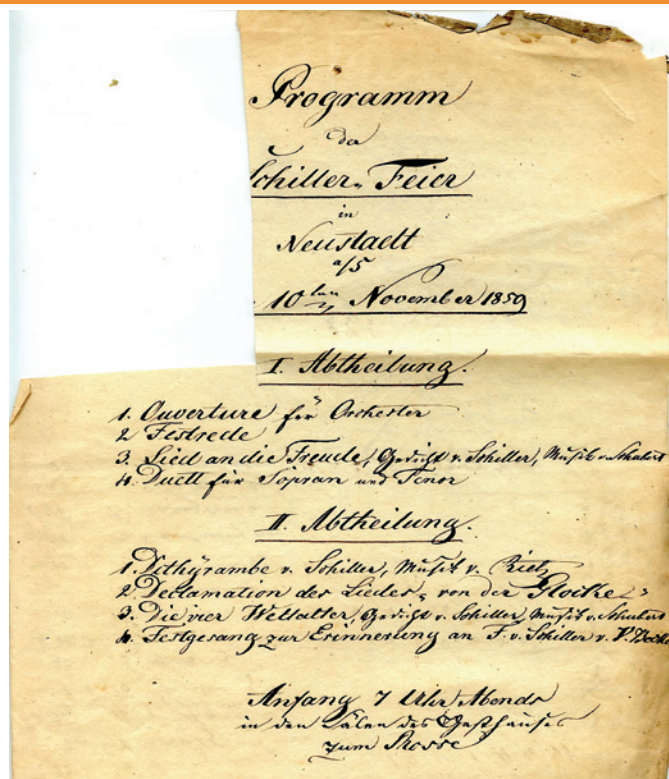 Programm
der
Schiller-Feier
in
Neustadt
a/S
10ten November 1859
I. Abtheilung.
1. Ouverture für Orchester
2 Festrede
3. Lied an die Freude, Gedicht v. Schiller, Musik v. Schubert
4. Duett für Sopran und Tenor
II. Abtheilung.
1. Dithÿrambe v. Schiller, Musik v. Rietz
2. Declamation des Liedes „von der Glocke“
3. Die vier Weltalter, Gedicht v. Schiller, Musik v. Schubert
4. Festgesang zur Erinnerung an F. v. Schiller v. V.
Anfang 7 Uhr Abends
in den Sälen des Gasthauses
zum Rosse